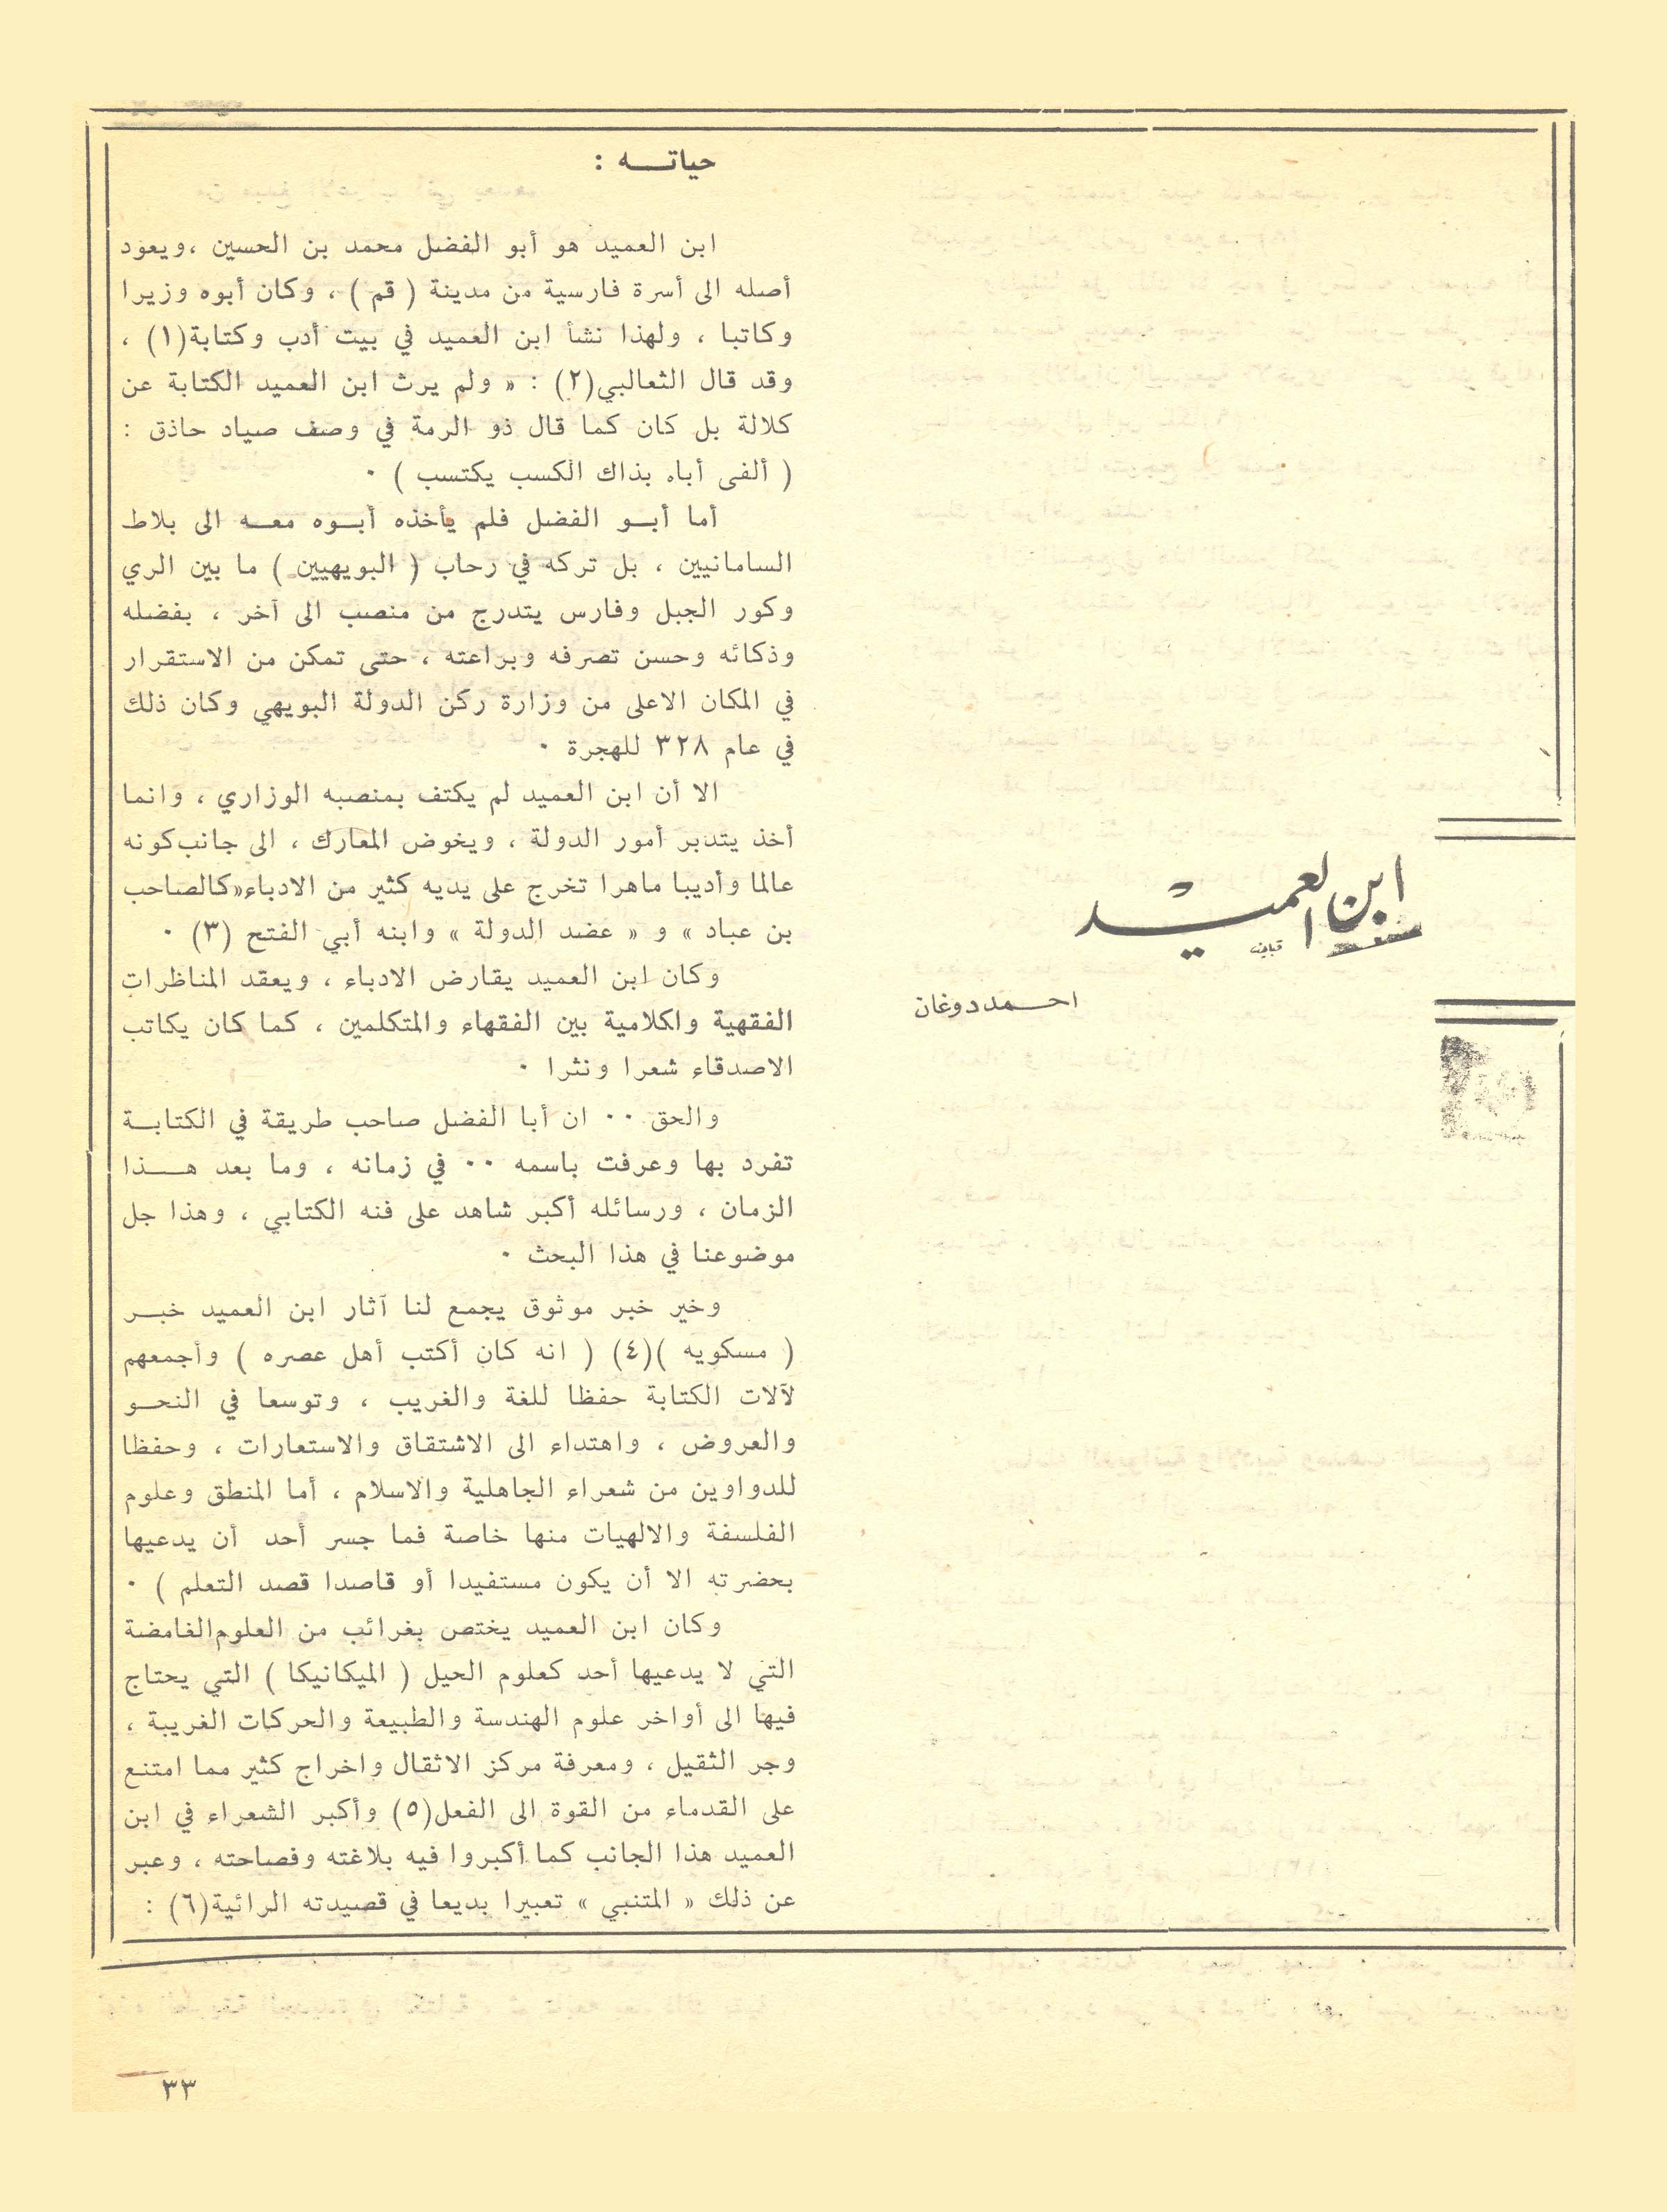 ابن العميد
احمد دوغان
حياته :
ابن العميد هو أبو الفضل محمد بن الحسين ، ويعود
أصله الى أسرة فارسية من مدينة ( قم ) ، وكان أبوه وزيرا
وكاتبا ، ولهذا نشأ ابن العميد في بيت أدب وكتابة(١) ،
وقد قال الثعالبي(٢) : « ولم يرث ابن العميد الكتابة عن
كلالة بل كان كما قال ذو الرمة في وصف صياد حاذق :
( ألفى أباه بذاك الكسب يكتسب ) ٠
أما أبو الفضل فلم يأخذه أبوه معه الى بلاط
السامانيين ، بل تركه في رحاب ( البويهيين ) ما بين الري
وكور الجبل وفارس يتدرج من منصب الى آخر ، بفضله
وذكائه وحسن تصرفه وبراعته ، حتى تمكن من الاستقرار
في المكان الاعلى من وزارة ركن الدولة البويهي وكان ذلك
في عام ٣٢٨ للهجرة ٠
الا أن ابن العميد لم يكتف بمنصبه الوزاري ، وانما
أخذ يتدبر أمور الدولة ، ويخوض المعارك ، الى جانب كونه
عالما وأديبا ماهرا تخرج على يديه كثير من الادباء «كالصاحب
بن عباد » و « عضد الدولة » وابنه أبي الفتح (٣) ٠
وكان ابن العميد يقارض الادباء ، ويعقد المناظرات
الفقهية واكلامية بين الفقهاء والمتكلمين ، كما كان يكاتب
الاصدقاء شعرا ونثرا ٠
والحق ٠٠ ان أبا الفضل صاحب طريقة في الكتابة
تفرد بها وعرفت باسمه ٠٠ في زمانه ، وما بعد هذا
الزمان ، ورسائله أكبر شاهد على فنه الكتابي ، وهذا جل
موضوعنا في هذا البحث ٠
وخير خبر موثوق يجمع لنا آثار ابن العميد خبر
( مسكويه )(٤) ( انه كان أكتب أهل عصره ) وأجمعهم
لآلات الكتابة حفظا للغة والغريب ، وتوسعا في النحو
والعروض ، واهتداء الى الاشتقاق والاستعارات ، وحفظا
للدواوين من شعراء الجاهلية والاسلام ، أما المنطق وعلوم
الفلسفة والالهيات منها خاصة فما جسر أحد أن يدعيها
بحضرته الا أن يكون مستفيدا أو قاصدا قصد التعلم ) ٠
وكان ابن العميد يختص بغرائب من العلوم الغامضة
التي لا يدعيها أحد كعلوم الحيل ( الميكانيكا ) التي يحتاج
فيها الى أواخر علوم الهندسة والطبيعة والحركات الغريبة ،
وجر الثقيل ، ومعرفة مركز الاثقال واخراج كثير مما امتنع
على القدماء من القوة الى الفعل(٥) وأكبر الشعراء في ابن
العميد هذا الجانب كما أكبروا فيه بلاغته وفصاحته ، وعبر
عن ذلك « المتنبي » تعبيرا بديعا في قصيدته الرائية(٦) :
٣٣